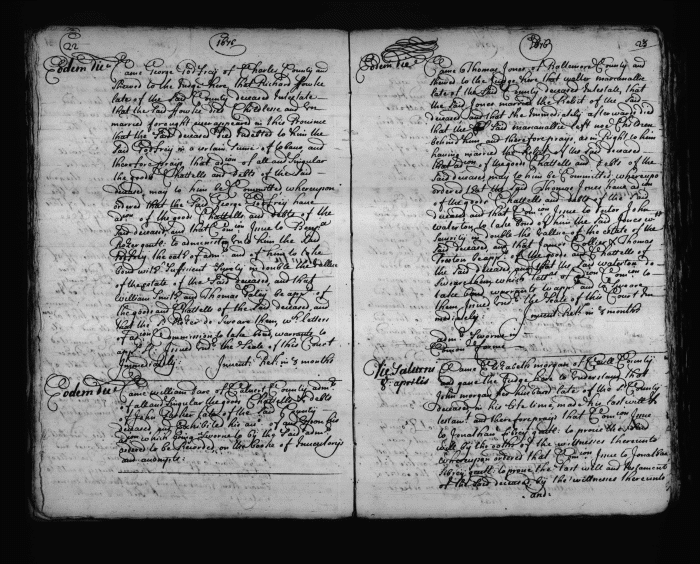 22
1676
Eodem Die
Came George Godfrey of Charles County and
shewed to the Judge here that Richard Fowke
late of the said County deceased Intestate
that the said Fowke died Childlesse and Un
married for ought ever appeared in this Province
that the said deceased died Indebted to him the
said Godfrey in a certain Summe of tobacco, and
therefore prays that adcon of all and Singular
the goods Chattells and debts of the said
deceased, may to him be Committed whereupon
ordered that the said George Godfrey have
adcon of the goods Chattells and debts of the
said deceased, and that Comicon issue to
gent. to administer unto him the said
Godfrey the oath of admr and of him to take
bond with Sufficient Surety in double the Vallue
of the estate of the said deceased, and that
William Smith and Thomas be apprs of
the goods and Chattells of the said deceased, and
that the do Sweare them, wch letters
of adcon Commission to take bond, warrante to
appr Issued undr the Seale of this Court
Immediately. Invent. Retn in 3 months
Eodem Die
Came William Dare of County admr
of all and Singular the goods Chattells & debts
of John late of the said County
deceased and Exhibited his acct of and upon his
adcon which being Sworne to by the said admr
ordered to be Recorded, in the Booke of Inventorys
and accompts.
1676
23
Eodem Die
Came Thomas Jones of Baltemore County and
shewed to the Judge here that Walter Marcanallie
late of the said County deceased Intestate, that
the said Jones married the Relict of the said
deceased, and that She immediately afterward died
that the said Marcanallie left noe Children
behind him and therefore prays as in Right to him
having married the Relict of the said deceased
that adcon of the goods Chattells and debts of the
said deceased may to him be Committed, whereupo
ordered that the said Thomas Jones have adcon
of the goods Chattells and debts of the said
deceased and that Comicon issue to John
Waterton, to take bond of him the said Jones wth
Surety in double the Vallue of the estate of the
said deceased and that James Collier & Thomas
be apprs of the goods and Chattells of
the said deceased and that the said Waterton do
Sweare them which letters of adcon Comicon to
take bond warrante to appr and to Sweare
them Issued undr the Seale of this Court Im
mediately. Invent. Retn 3 months
admr Sworne in
Common forme
Die Saturni
8 aprilis
Came Elizabeth Morgan of Caecill County
and gave the Judge here to Understand that
John Morgan her husband late of the sd County
deceased in his life time, made his last will &
testamt and therefore prays that Comicon issue
to Jonathan Sibrey gent. to prove the said
will by the oaths of the witnesses thereunto
whereupon ordered that Comicon issue to Jonathan
Sibrey gent. to prove the last will and testamente
of the said deceased by the wittnesses thereunto
and